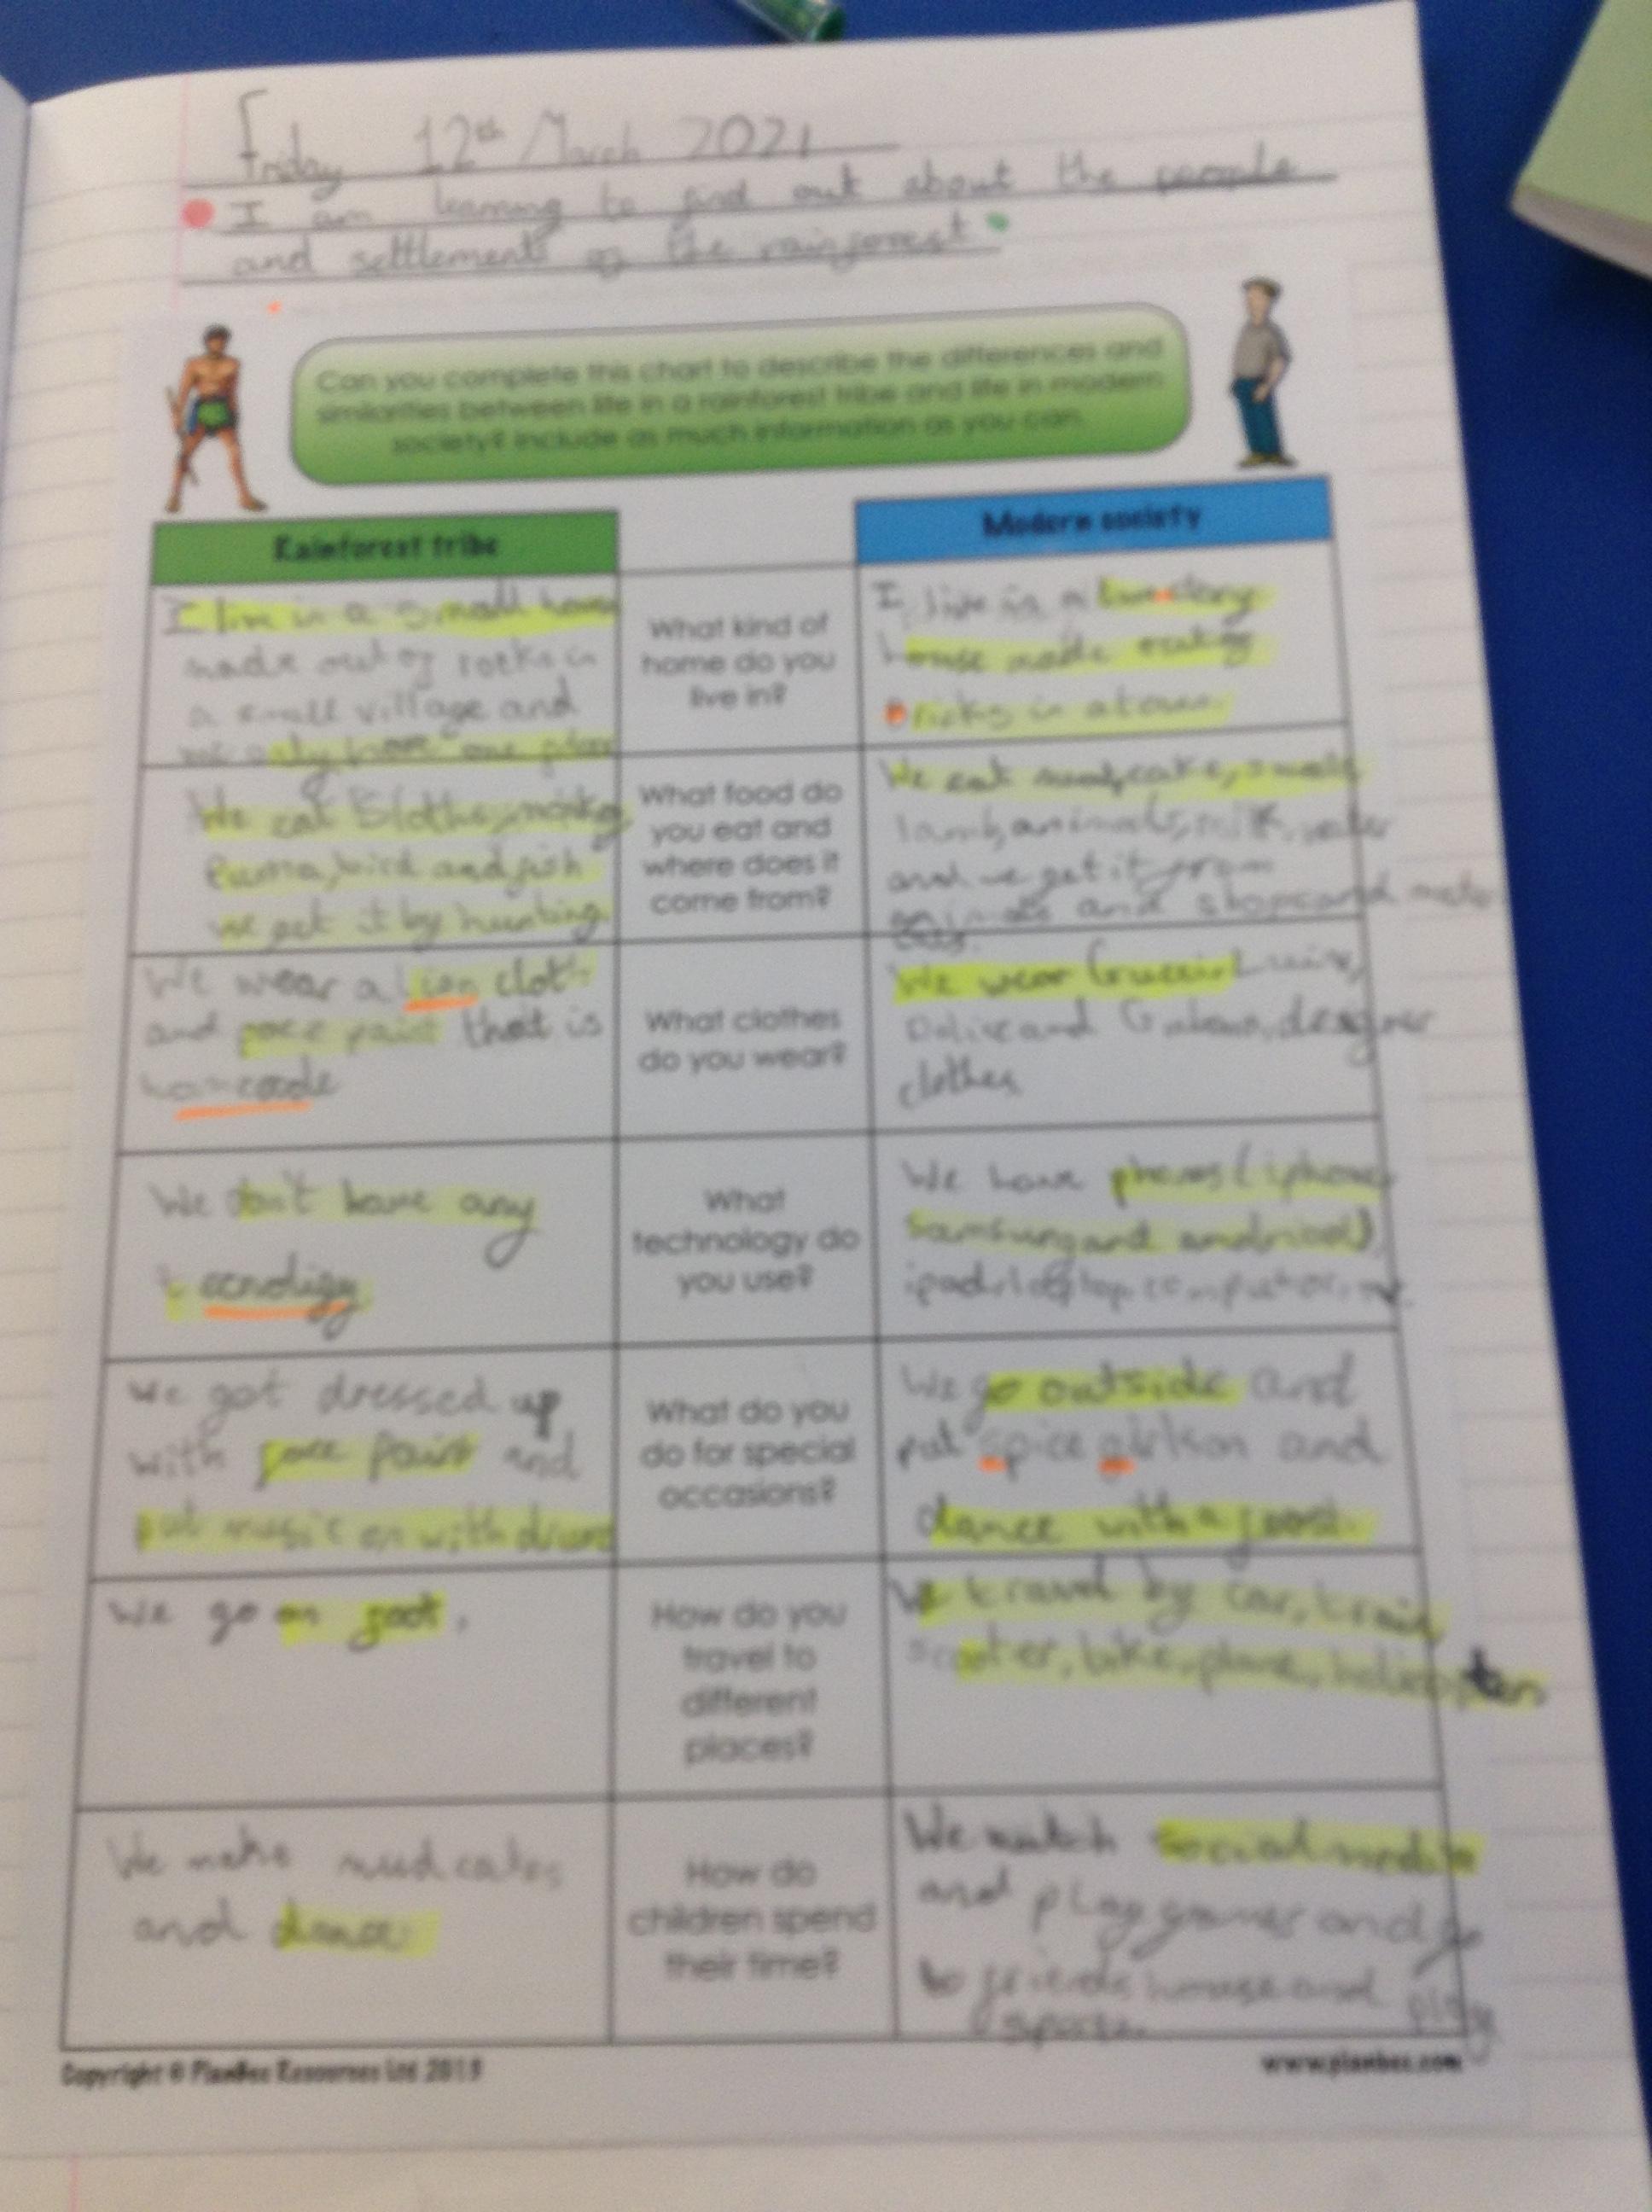 Friday 12th March 2021
I am learning to find out about the people
and settlements of the rainforest
Can you complete this chart to describe the differences and
similarities between life in a rainforest tribe and life in modern
society? Include as much information as you can.
Rainforest tribe
Modern society
I live in a small house
made out of rocks in
a small village and
we only have one
What kind of
home do you
live in?
I live in a two story
house made out of
bricks in a town.
We eat Sloths, monkey
Puma, bird and fish
we get it by hunting.
What food do
you eat and
where does it
come from?
We eat
lamb, animals, milk, water
and we get it from
animals and shops and
We wear a lion cloth
and face paint that is
What clothes
do you wear?
We wear Gucci
and designer
clothes
We don't have any
What
technology do
you use?
We have phones (iphone
Samsung and
ipad, laptop
We got dressed up
with face paint and
put music on with drums
What do you
do for special
occasions?
We go outside and
put spice and
dance with a
We go on foot.
How do you
travel to
different
places?
We travel by car, train,
scooter, bike, plane,
We make mud cakes
and dance.
How do
children spend
their time?
We watch social media
and play games and go
to friends house and play
sports.
Copyright © PlanBee Resources Ltd 2019
www.planbee.com